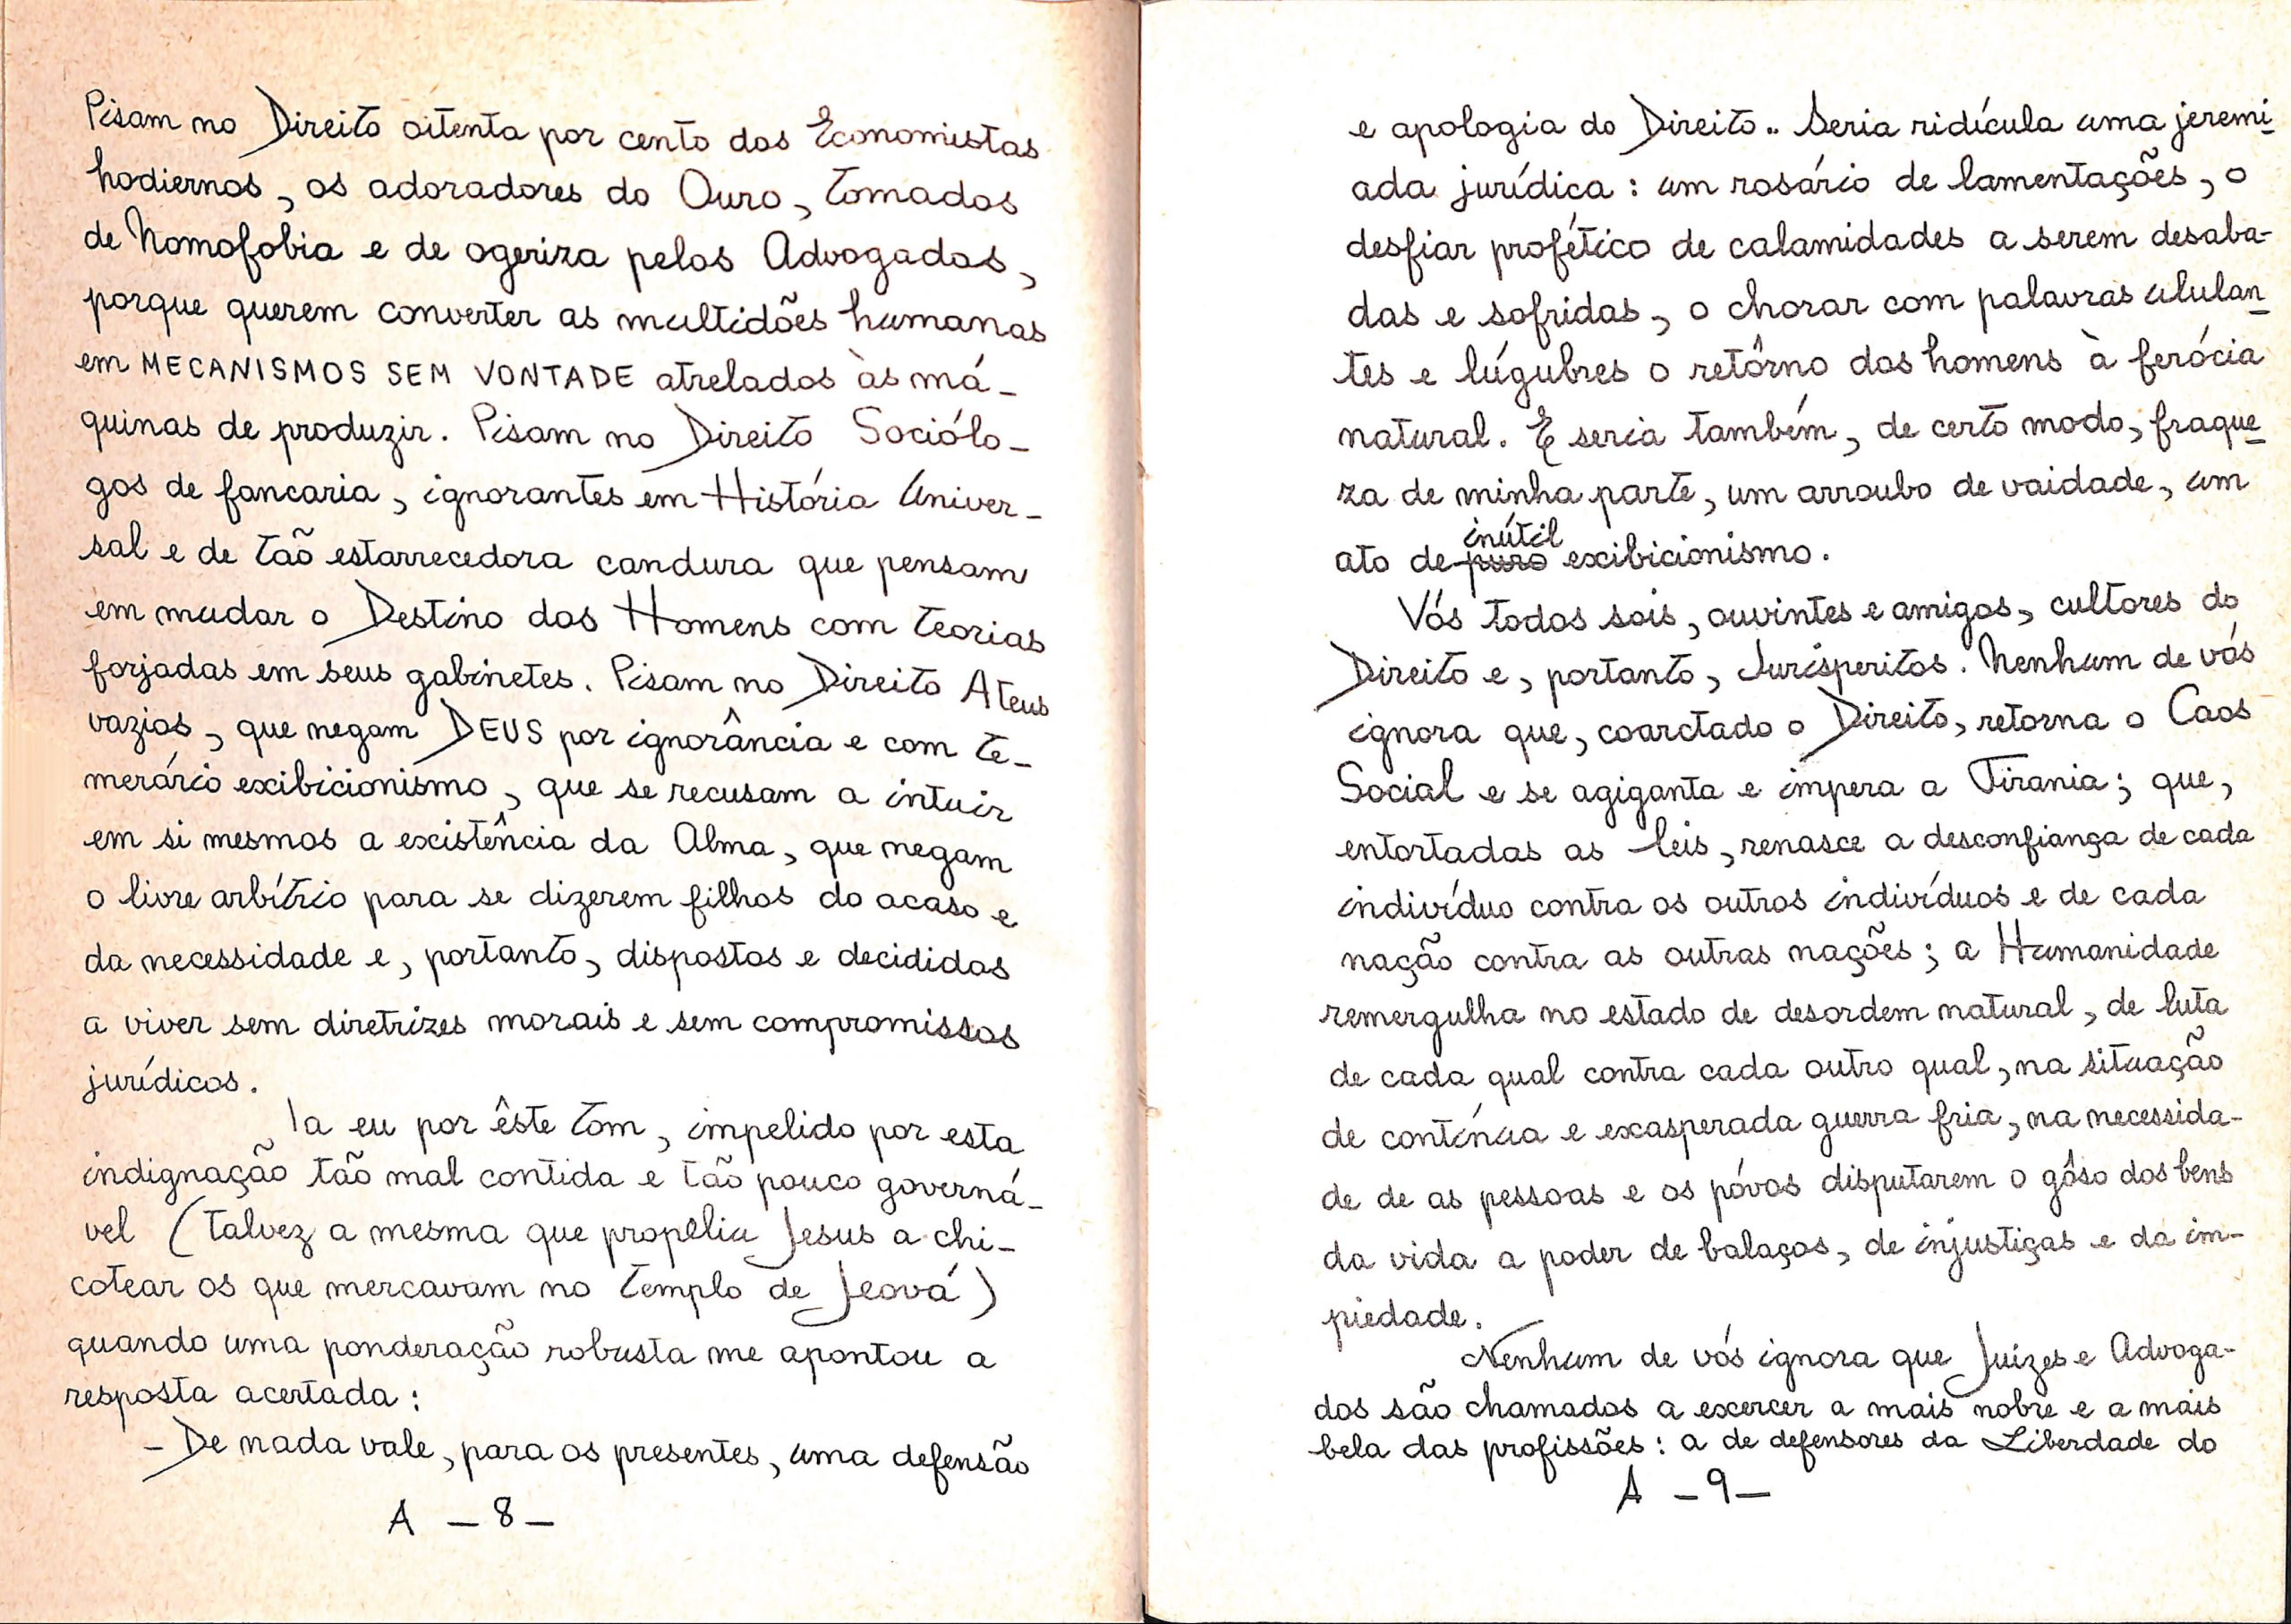 Pisam no Direito oitenta por cento dos Economistas
hodiernos, os adoradores do Ouro, tomados
de Nomofobia e de ogeriza pelos Advogados,
porque querem converter as multidões humanas
em MECANISMOS SEM VONTADE atrelados às má-
quinas de produzir. Pisam no Direito Sociólo-
gos de fancaria, ignorantes em História Univer-
sal e de tão estarrecedora candura que pensam
em mudar o Destino dos Homens com teorias
forjadas em seus gabinetes. Pisam no Direito Ateus
vazios, que negam DEUS por ignorância e com te-
merário exibicionismo, que se recusam a intuir
em si mesmos a existência da Alma, que negam
o livre arbítrio para se dizerem filhos do acaso e
da necessidade e, portanto, dispostos e decididos
a viver sem diretrizes morais e sem compromissos
jurídicos.
Ia eu por êste tom, impelido por esta
indignação tão mal contida e tão pouco governá-
vel (talvez a mesma que propeliu Jesus a chi-
cotear os que mercavam no templo de Jeová)
quando uma ponderação robusta me apontou a
resposta acertada:
- De nada vale, para os presentes, uma defensão
A - 8 -
e apologia do Direito.. Seria ridícula uma jeremi-
ada jurídica: um rosário de lamentações, o
desfiar profético de calamidades a serem desaba-
das e sofridas, o chorar com palavras ululan-
tes e lúgubres o retôrno dos homens à ferócia
natural. E seria também, de certo modo, fraque-
za de minha parte, um arroubo de vaidade, um
inútil
ato de puro exibicionismo.
Vós todos sois, ouvintes e amigos, cultores do
Direito e, portanto, Jurisperitos. Nenhum de vós
ignora que, coarctado o Direito, retorna o Caos
Social e se agiganta e impera a Tirania; que,
entortadas as leis, renasce a desconfiança de cada
indivíduo contra os outros indivíduos e de cada
nação contra as outras nações; a Humanidade
remergulha no estado de desordem natural, de luta
de cada qual contra cada outro qual, na situação
de contínua e exasperada guerra fria, na necessida-
de de as pessoas e os póvos disputarem o gôso dos bens
da vida a poder de balaços, de injustiças e da im-
piedade.
Nenhum de vós ignora que Juízes e Advoga-
dos são chamados a exercer a mais nobre e a mais
bela das profissões: a de defensores da Liberdade do
A - 9 -